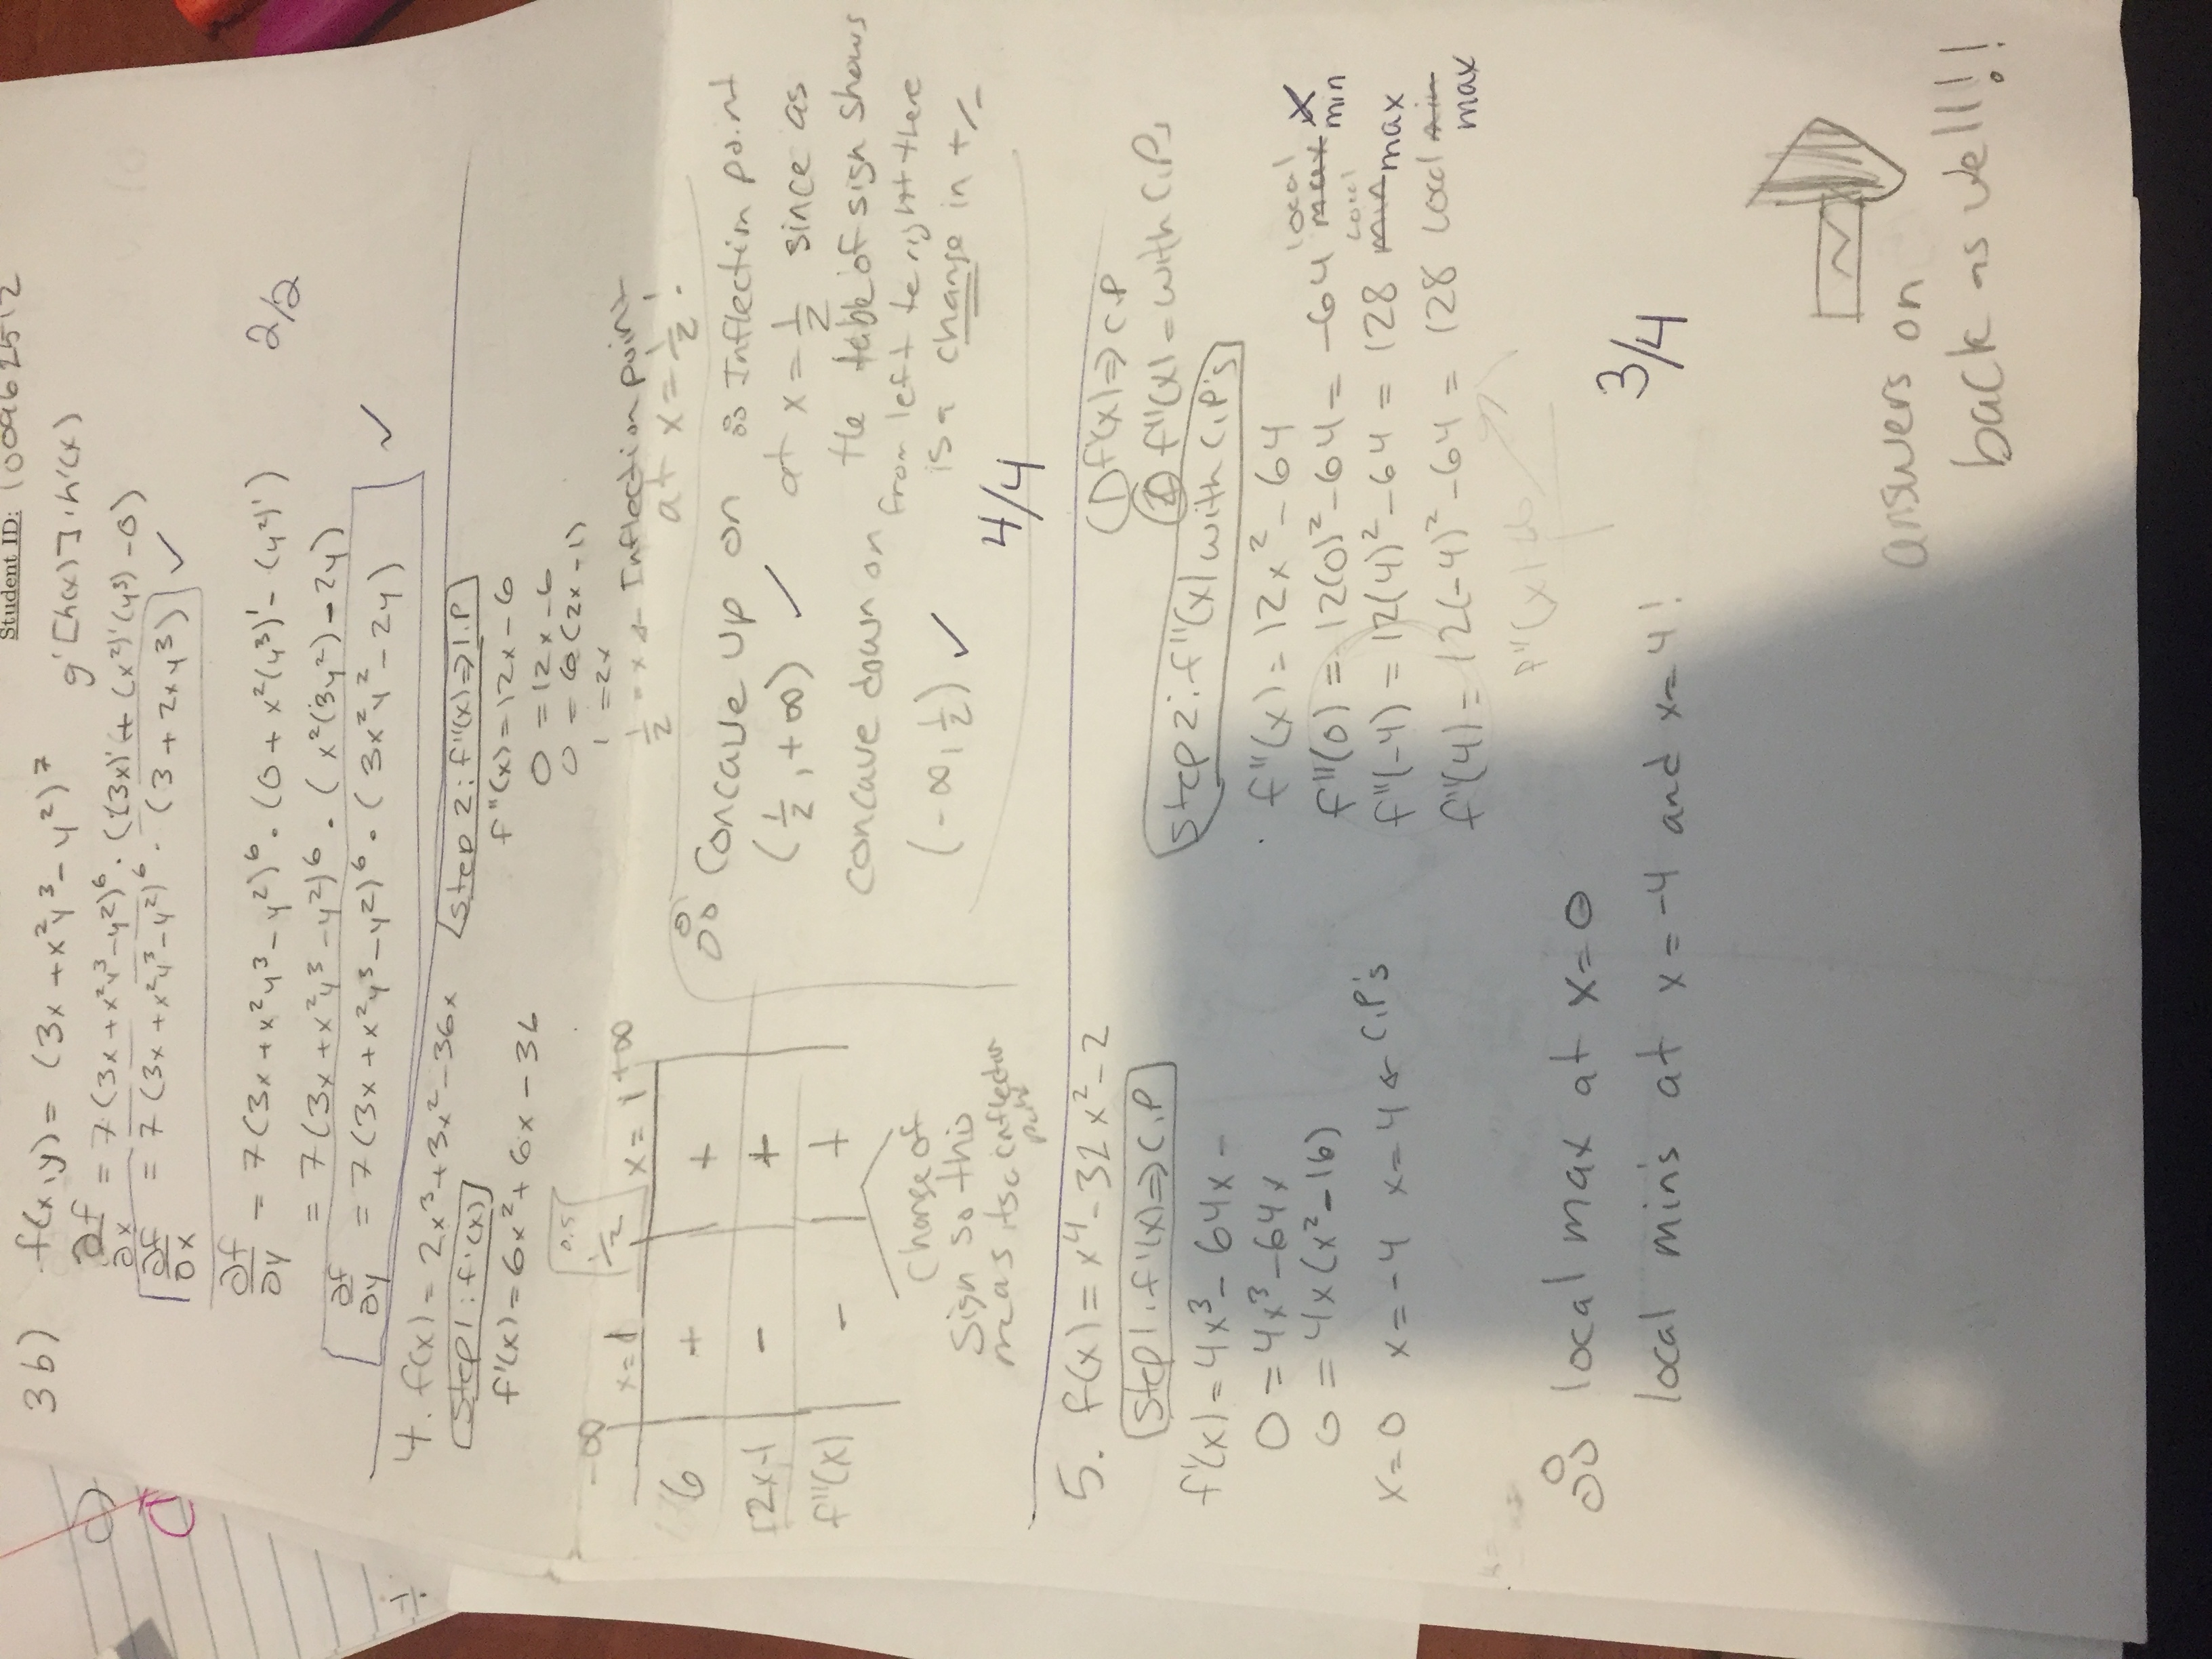 Student ID: 100962512
3b) f(x,y) = (3x + x²y³ - y²)⁷ g'[h(x)]·h'(x)
∂f/∂x = 7(3x + x²y³ - y²)⁶ · ((3x)' + (x²)'(y³) - 0)
∂f/∂x = 7(3x + x²y³ - y²)⁶ · (3 + 2xy³) ✓
∂f/∂y = 7(3x + x²y³ - y²)⁶ · (0 + x²(y³)' - (y²)')
= 7(3x + x²y³ - y²)⁶ · (x²(3y²) - 2y)
∂f/∂y = 7(3x + x²y³ - y²)⁶ · (3x²y² - 2y) ✓
2/2
4. f(x) = 2x³ + 3x² - 36x
Step 1: f'(x)
f'(x) = 6x² + 6x - 36
Step 2: f''(x) => I.P
f''(x) = 12x - 6
0 = 12x - 6
0 = 6(2x - 1)
1 = 2x
1/2 = x ← Inflection point
at x = 1/2!
0.5
-∞ x=1 1/2 x=1 +∞
6 + +
2x-1 - +
f''(x) - +
Change of
sign so this
means its a inflection
point
∴ Concave up on
(1/2, +∞) ✓
concave down on
(-∞, 1/2) ✓
∴ Inflection point
at x = 1/2 since as
the table of sign shows
from left to right there
is a change in +/-
4/4
5. f(x) = x⁴ - 32x² - 2
① f'(x) => C.P
② f''(x) = with C.P's
Step 1: f'(x) => C.P
f'(x) = 4x³ - 64x -
0 = 4x³ - 64x
0 = 4x(x² - 16)
x=0 x=-4 x=4 ← C.P's
Step 2: f''(x) with C.P's
f''(x) = 12x² - 64
f''(0) = 12(0)² - 64 = -64 local max x min
f''(-4) = 12(4)² - 64 = 128 local min max
f''(4) = 12(-4)² - 64 = 128 local min max
∴ local max at x=0
local min's at x=-4 and x=4!
3/4
answers on
back as well!!